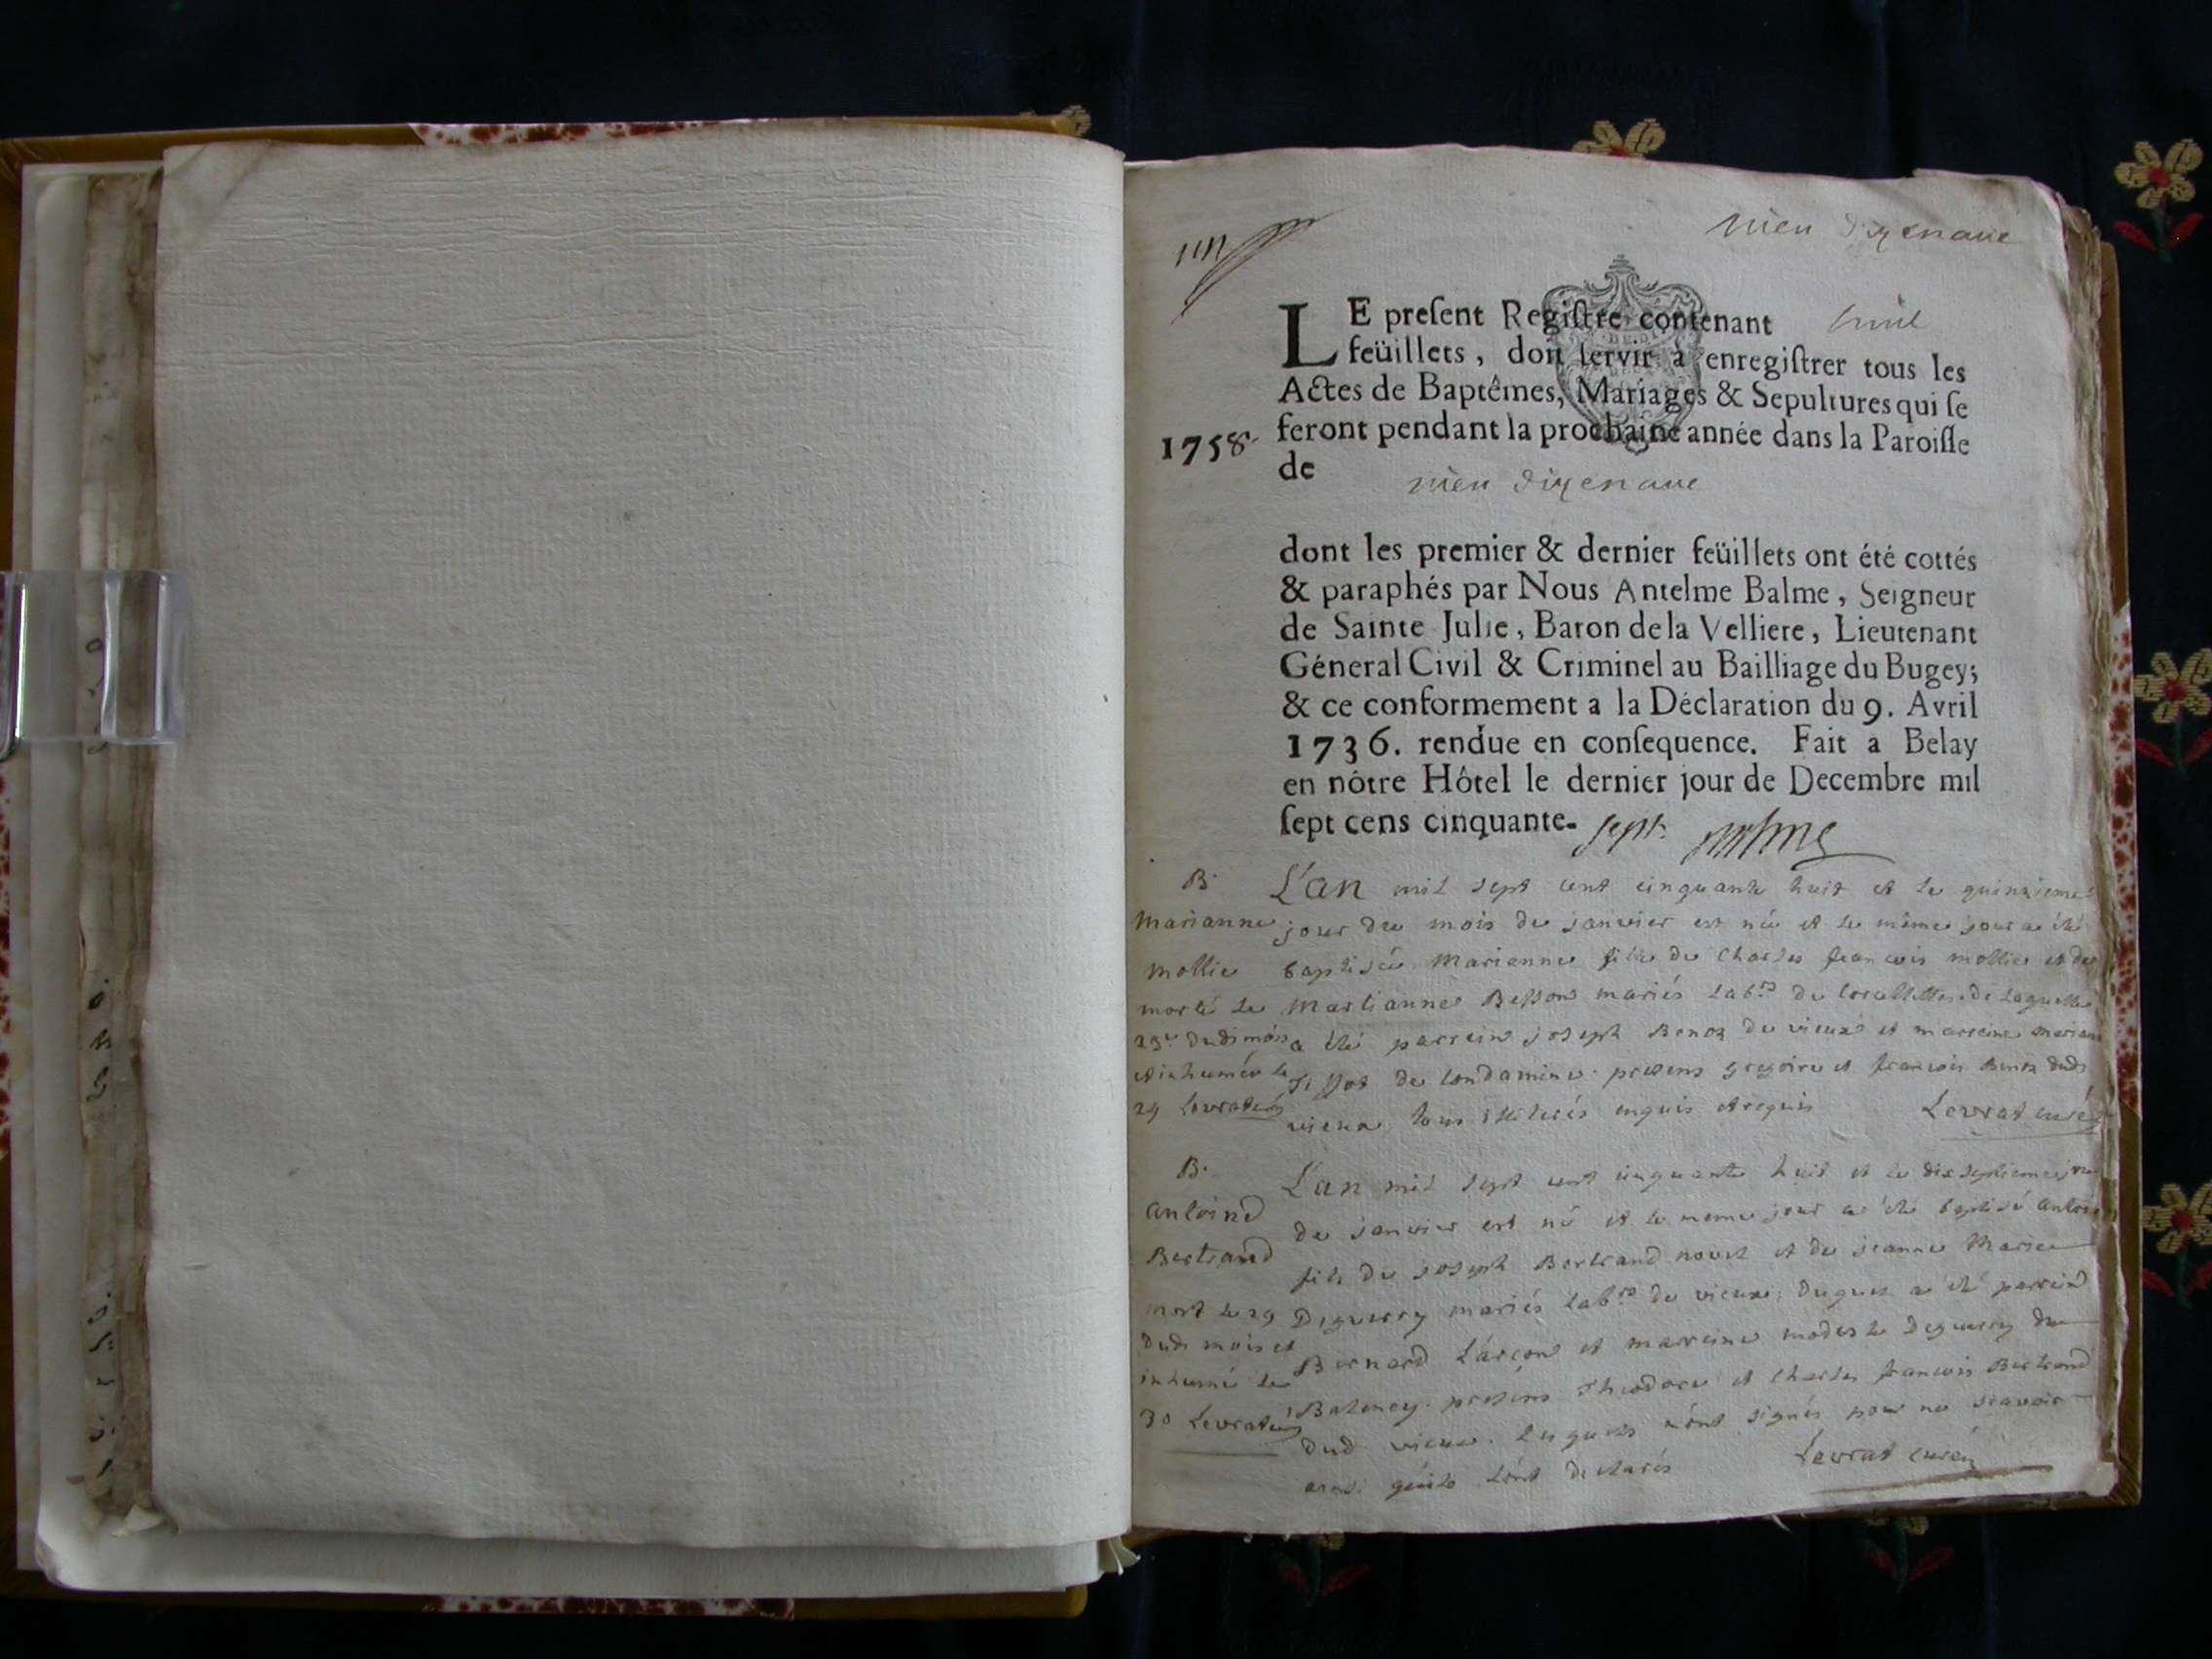 un
vieu d'izenave
LE preſent Regiſtre contenant huit
feüillets, doit ſervir à enregiſtrer tous les
Actes de Baptêmes, Mariages & Sepultures qui ſe
feront pendant la prochaine année dans la Paroiſſe
1758
de vieu d'izenave
dont les premier & dernier feüillets ont été cottés
& paraphés par Nous Antelme Balme, Seigneur
de Sainte Julie, Baron de la Velliere, Lieutenant
Géneral Civil & Criminel au Bailliage du Bugey;
& ce conformement a la Déclaration du 9. Avril
1736. rendue en conſequence. Fait a Belay
en nôtre Hôtel le dernier jour de Decembre mil
ſept cens cinquante- sept. Balme
B.
Marianne
mollie
morte le
23e dudi mois
et inhumée le
24 Levrat curé
L'an mil sept cent cinquante huit et le quinzieme
jour du mois de janvier est née et le même jour a été
baptisée Marianne fille de Charles francois mollie et de
Marianne Besson mariés lab.rs de de laquelle
a été parrein joseph Benoz de vieux et marreine mariane
Tissot de londamine. presens gregoire et francois Benoz dudi
vieux tous illiterés enquis et requis Levrat curé
B.
antoine
Bertrand
mort le 29
dudi mois et
inhumé le
30 Levrat curé
L'an mil sept cent cinquante huit et le dix septieme jour
de janvier est né et le meme jour a été baptisé antoine
fils de joseph Bertrand et de jeanne Marie
Deguerry mariés lab.rs de vieux; duquel a été parrein
Bernard Larçon et marreine modeste deguerry de
Balmey. presens Theodore et Charles francois Bertrand
dud vieux. lesquels n'ont signés pour ne scavoir
ainsi qu'ils l'ont declarés Levrat curé